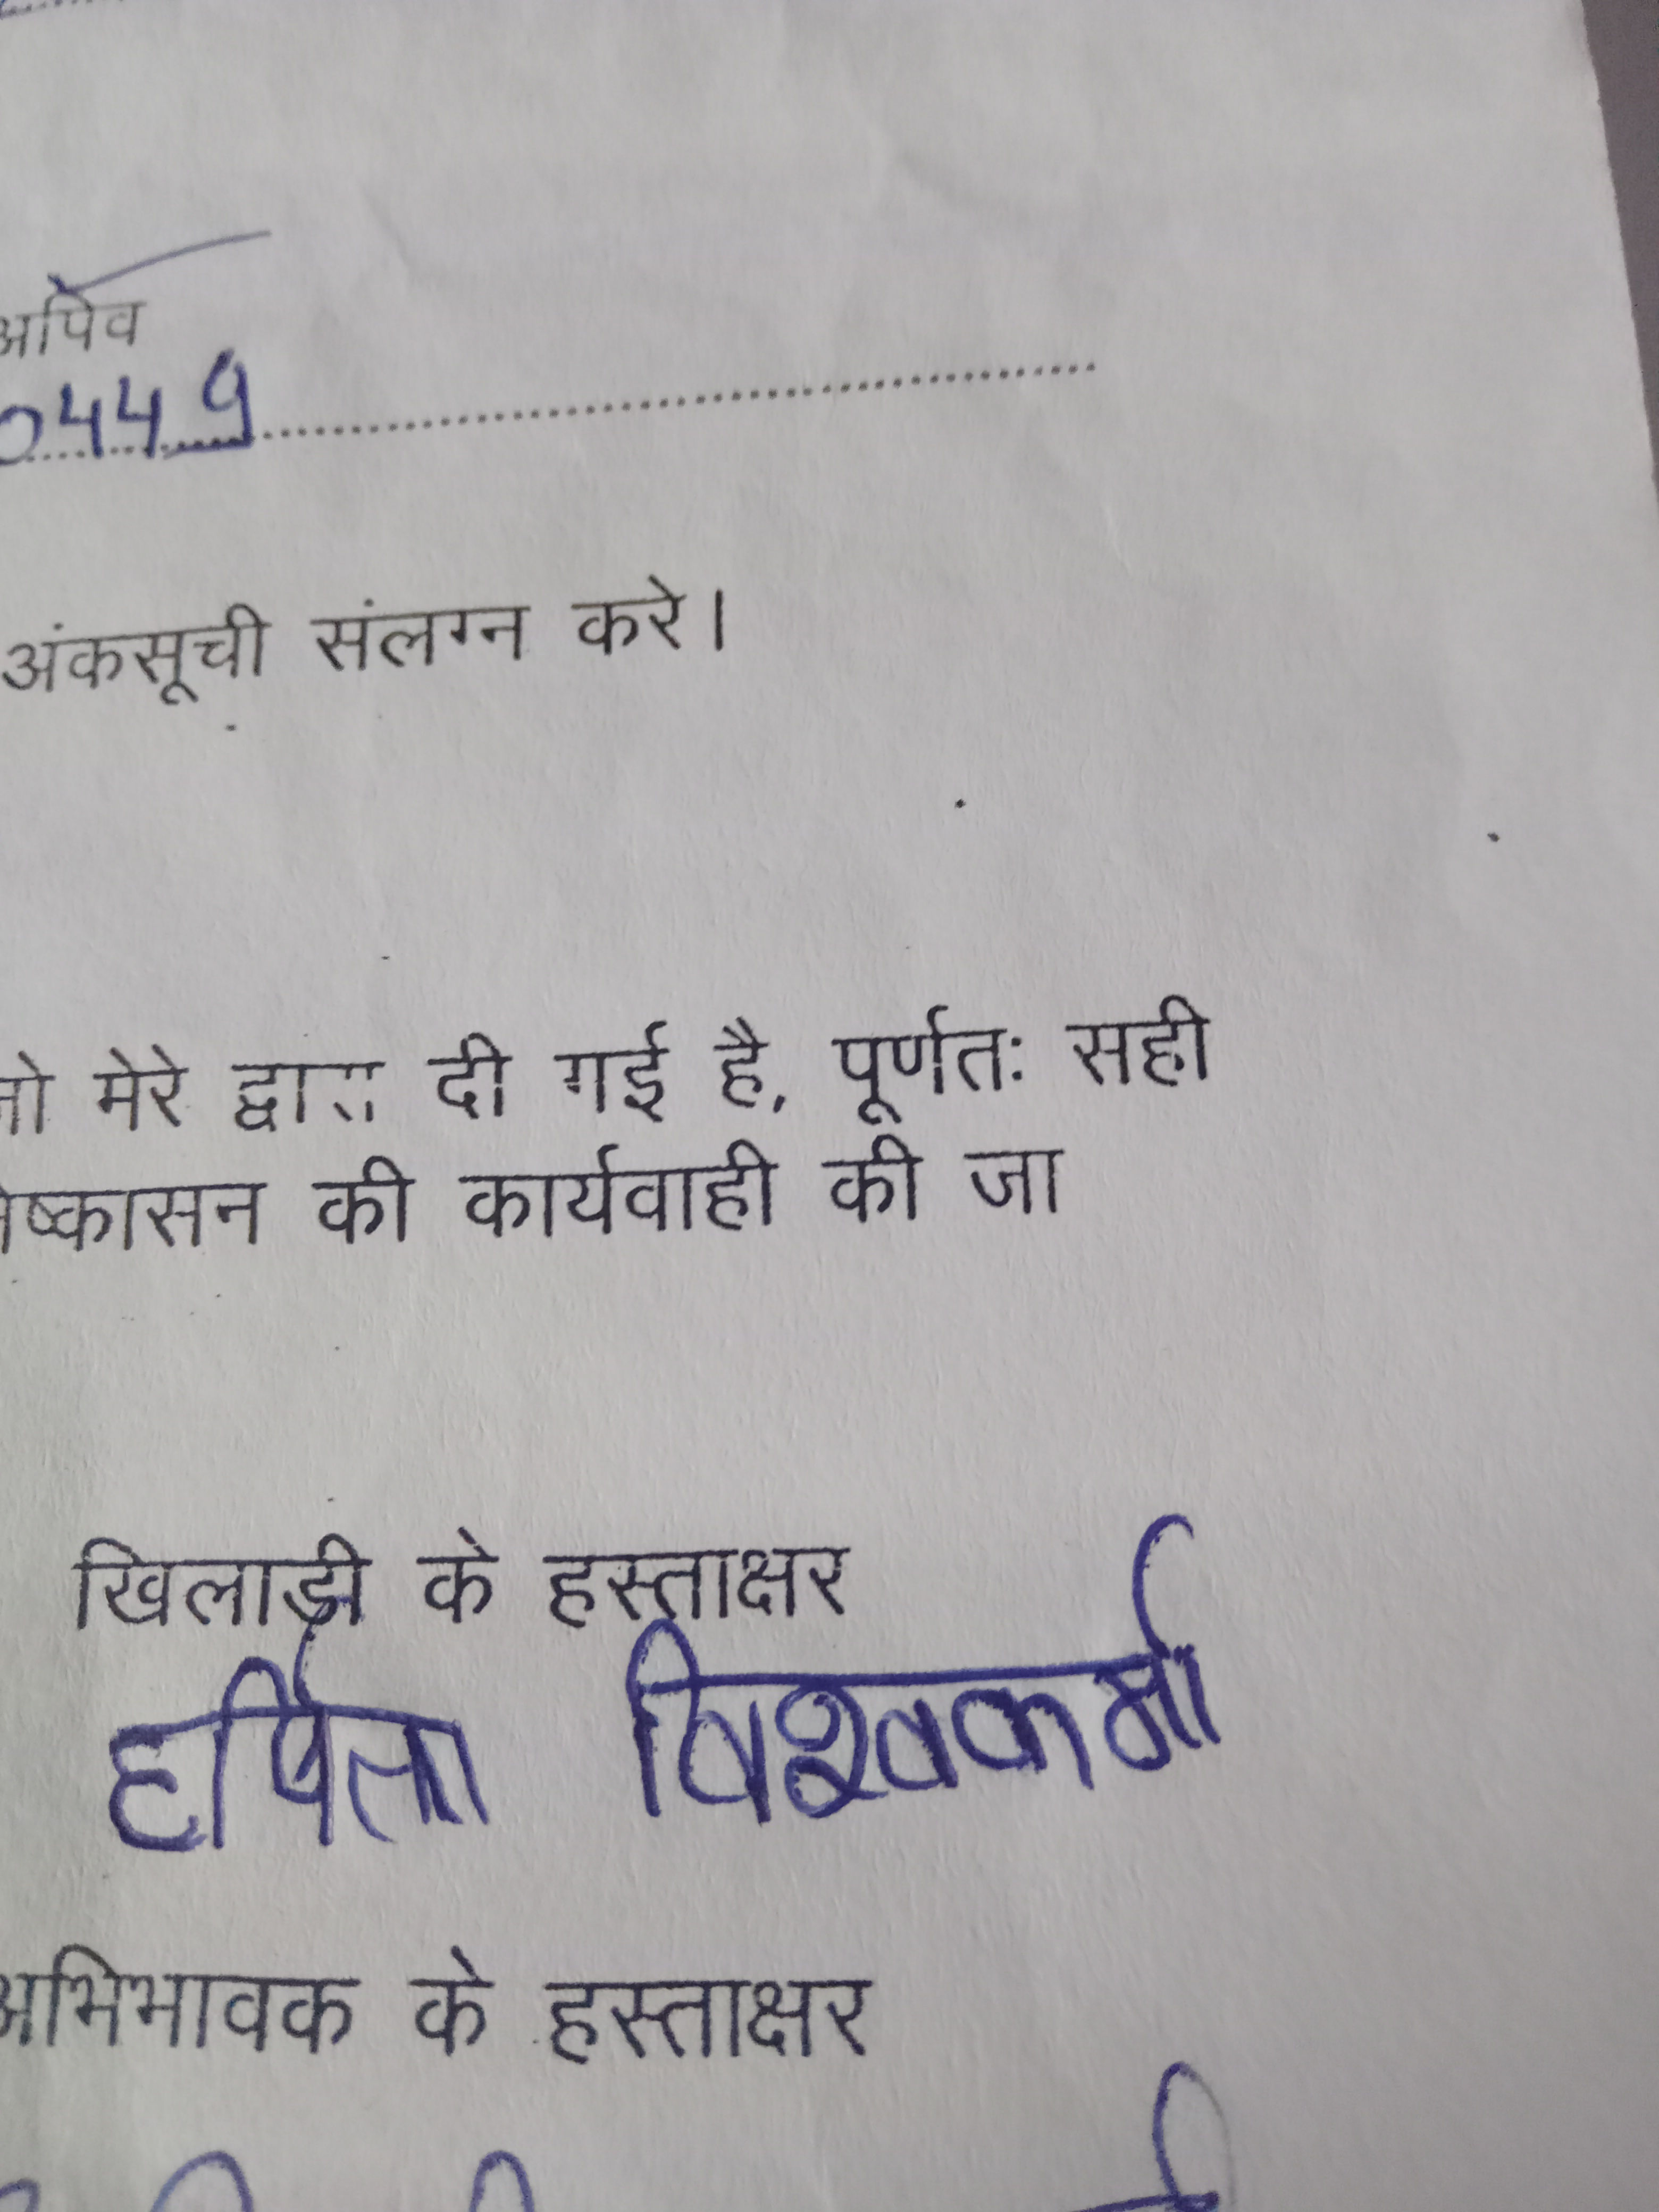 अपिव
0449
अंकसूची संलग्न करे।
मेरे द्वारा दी गई है, पूर्णतः सही
की कार्यवाही की जा
खिलाड़ी के हस्ताक्षर
हर्पिता विश्वकर्मा
अभिभावक के हस्ताक्षर